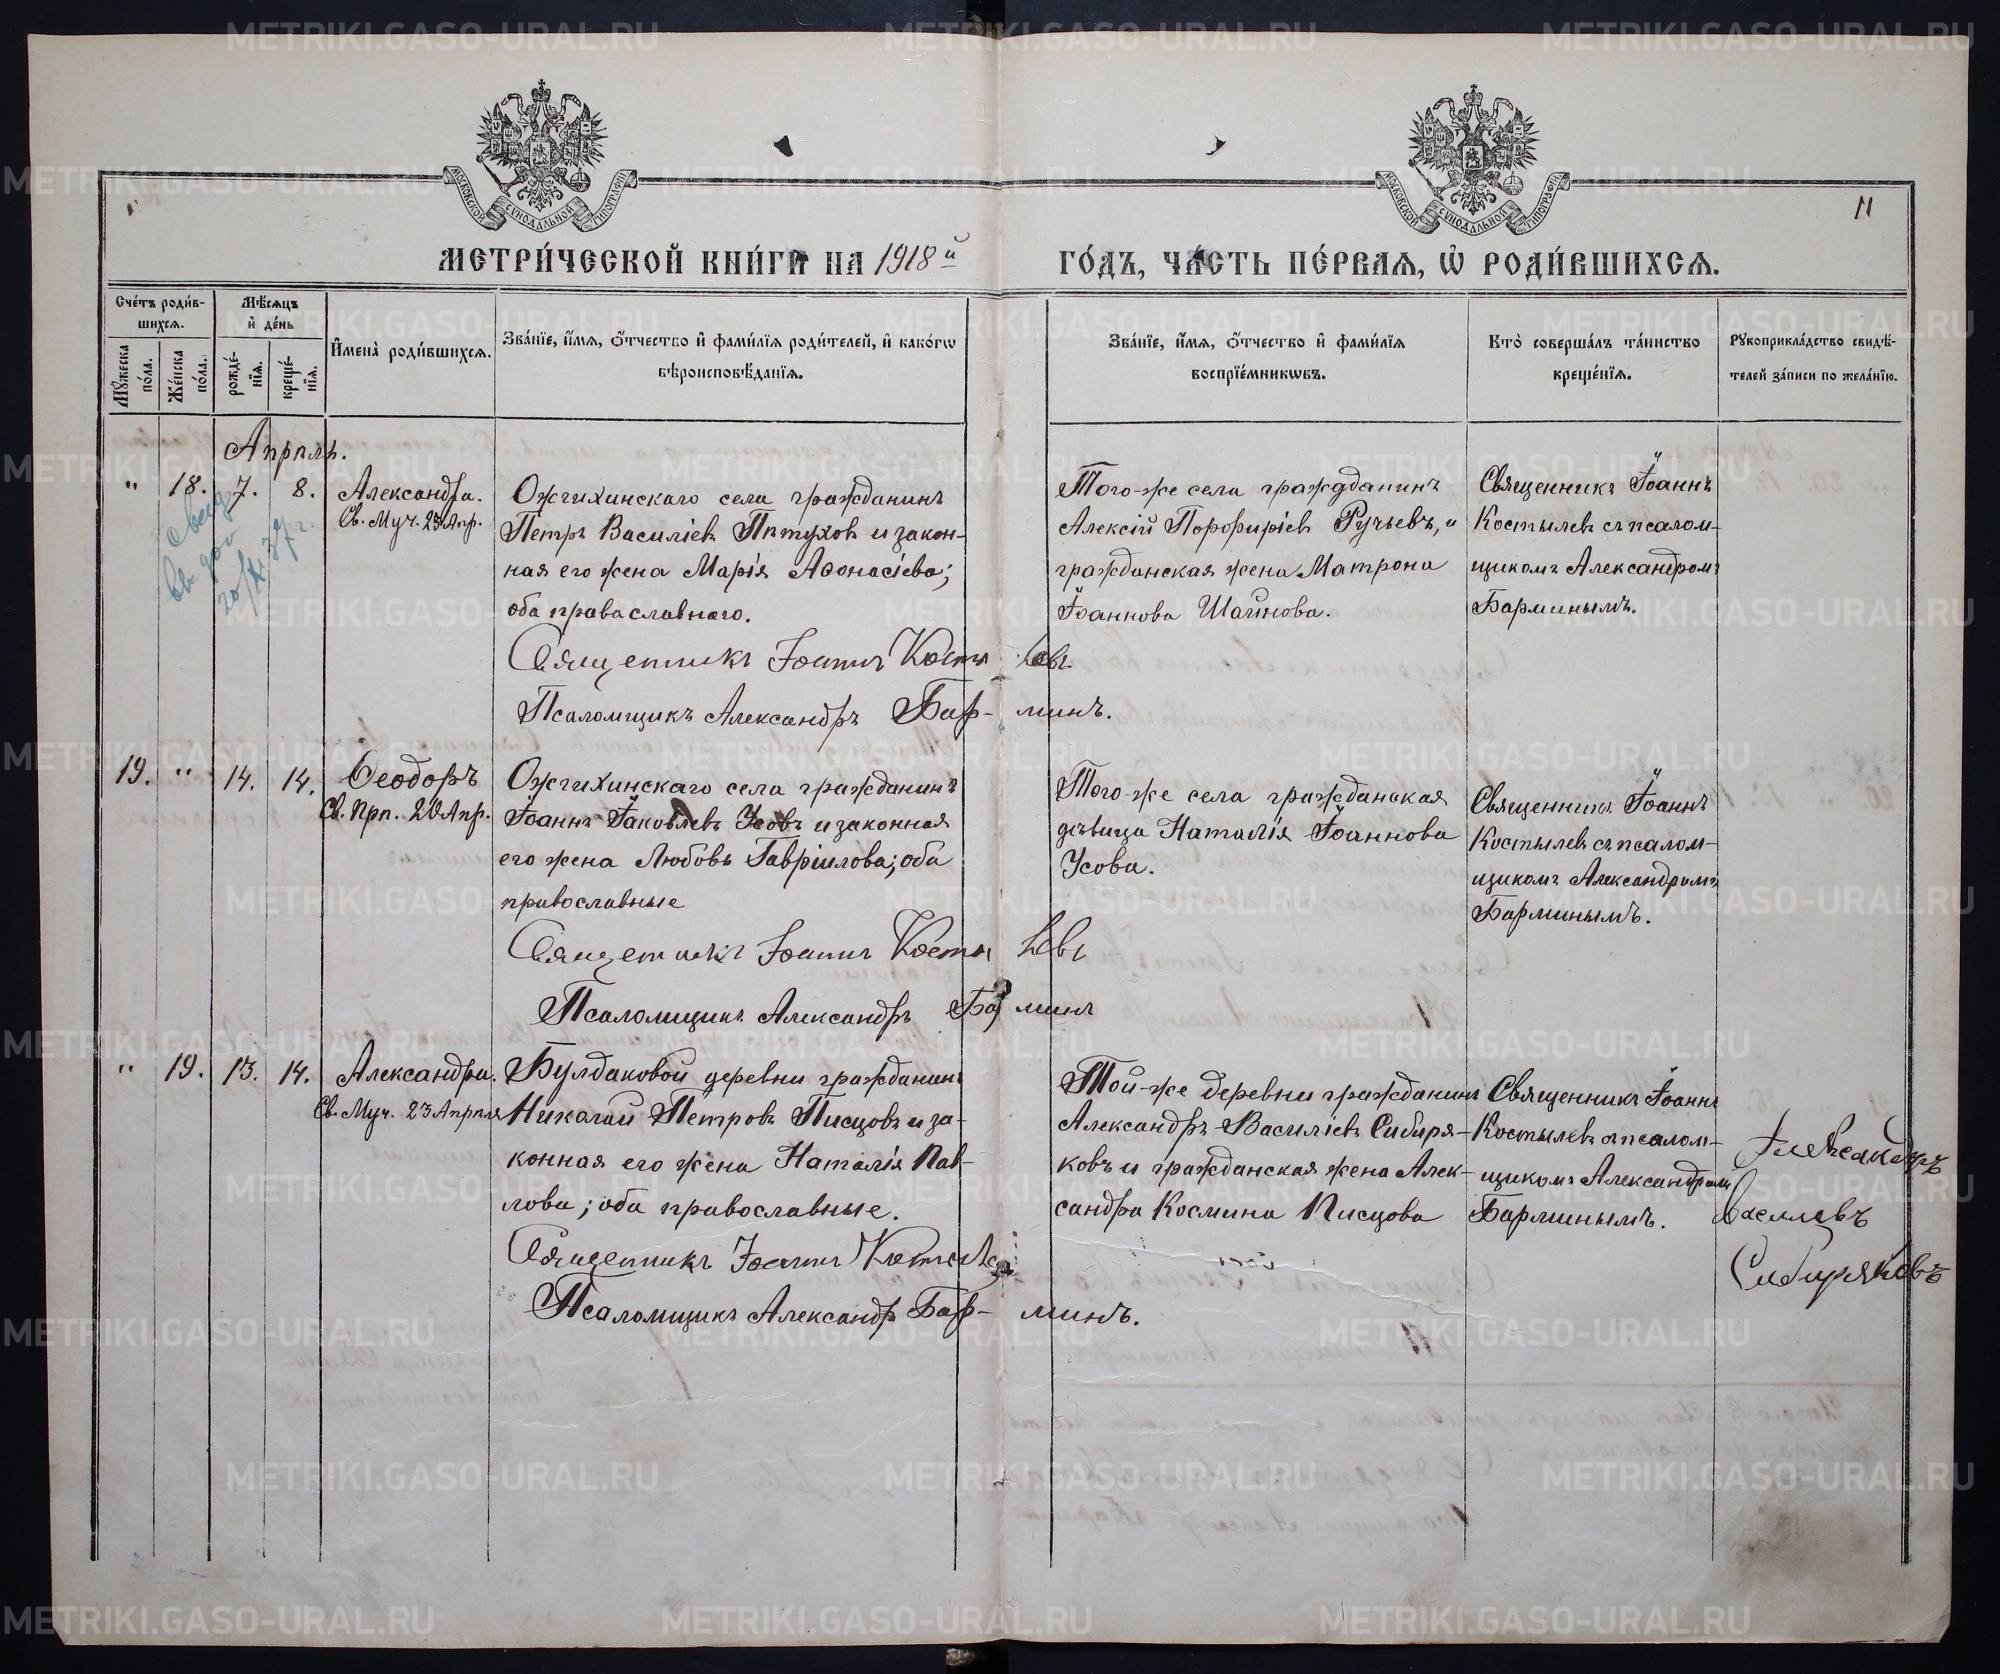 МЕТРИ́ЧЕСКОЙ КНИ́ГИ НА 1918й ГО́ДЪ, ЧА́СТЬ ПЕ́РВАѦ, Ѡ҆ РОДИ́ВШИХСѦ.
11
МОСКОВСКОЙ СѴНОДАЛЬНОЙ ТИПОГРАФІИ
МОСКОВСКОЙ СѴНОДАЛЬНОЙ ТИПОГРАФІИ
Сче́тъ роди́вшихсѧ.
Мꙋжеска по́ла.
Же́нска по́ла.
Мѣ́сѧцъ и҆ де́нь
рожде́нїѧ.
креще́нїѧ.
И҆мена̀ роди́вшихсѧ.
Зва́нїе, и҆́мѧ, ѻ҆́тчество и҆ фами́лїѧ роди́телей, и҆ како́гѡ
вѣроисповѣ́данїѧ.
Зва́нїе, и҆́мѧ, ѻ҆́тчество и҆ фами́лїѧ
воспрїе́мникѡвъ.
Кто̀ соверша́лъ та́инство
креще́нїѧ.
Рꙋкоприкла́дство свидѣ́-
телей за́писи по жела́нїю.
Апрѣль.
" 18. 7. 8. Александра.
Св. Муч. 23 Апр.
Ожгихинскаго села гражданинъ
Петръ Василіевъ Пѣтуховъ и закон-
ная его жена Марія Аѳонасіева;
оба православнаго.
Священникъ Іоаннъ Костылевъ
Псаломщикъ Александръ Бар- минъ.
Того-же села гражданинъ
Алексій Порфиріевъ Ручьевъ, и
гражданская жена Матрона
Іоаннова Шаинова.
Священникъ Іоаннъ
Костылевъ съ псалом-
щикомъ Александромъ
Барминымъ.
19. " 14. 14. Ѳеодоръ
Св. Прп. 20 Апр.
Ожгихинскаго села гражданинъ
Іоаннъ Іаковлевъ Усовъ и законная
его жена Любовь Гавріилова; оба
православные
Священникъ Іоаннъ Костылевъ
Псаломщикъ Александръ Барминъ
Того-же села гражданская
дѣвица Наталія Іоаннова
Усова.
Священникъ Іоаннъ
Костылевъ съ псалом-
щикомъ Александромъ
Барминымъ.
" 19. 13. 14. Александра.
Св. Муч. 23 Апрѣля
Булдаковой деревни гражданинъ
Николай Петровъ Писцовъ и за-
конная его жена Наталія Пав-
лова; оба православные.
Священникъ Іоаннъ Костылевъ
Псаломщикъ Александръ Бар- минъ.
Той-же деревни гражданинъ
Александръ Василіевъ Сибиря-
ковъ и гражданская жена Алек-
сандра Космина Писцова
Священникъ Іоаннъ
Костылевъ съ псалом-
щикомъ Александромъ
Барминымъ.
Александръ
Василевъ
Сибиряковъ
METRIKI.GASO-URAL.RU